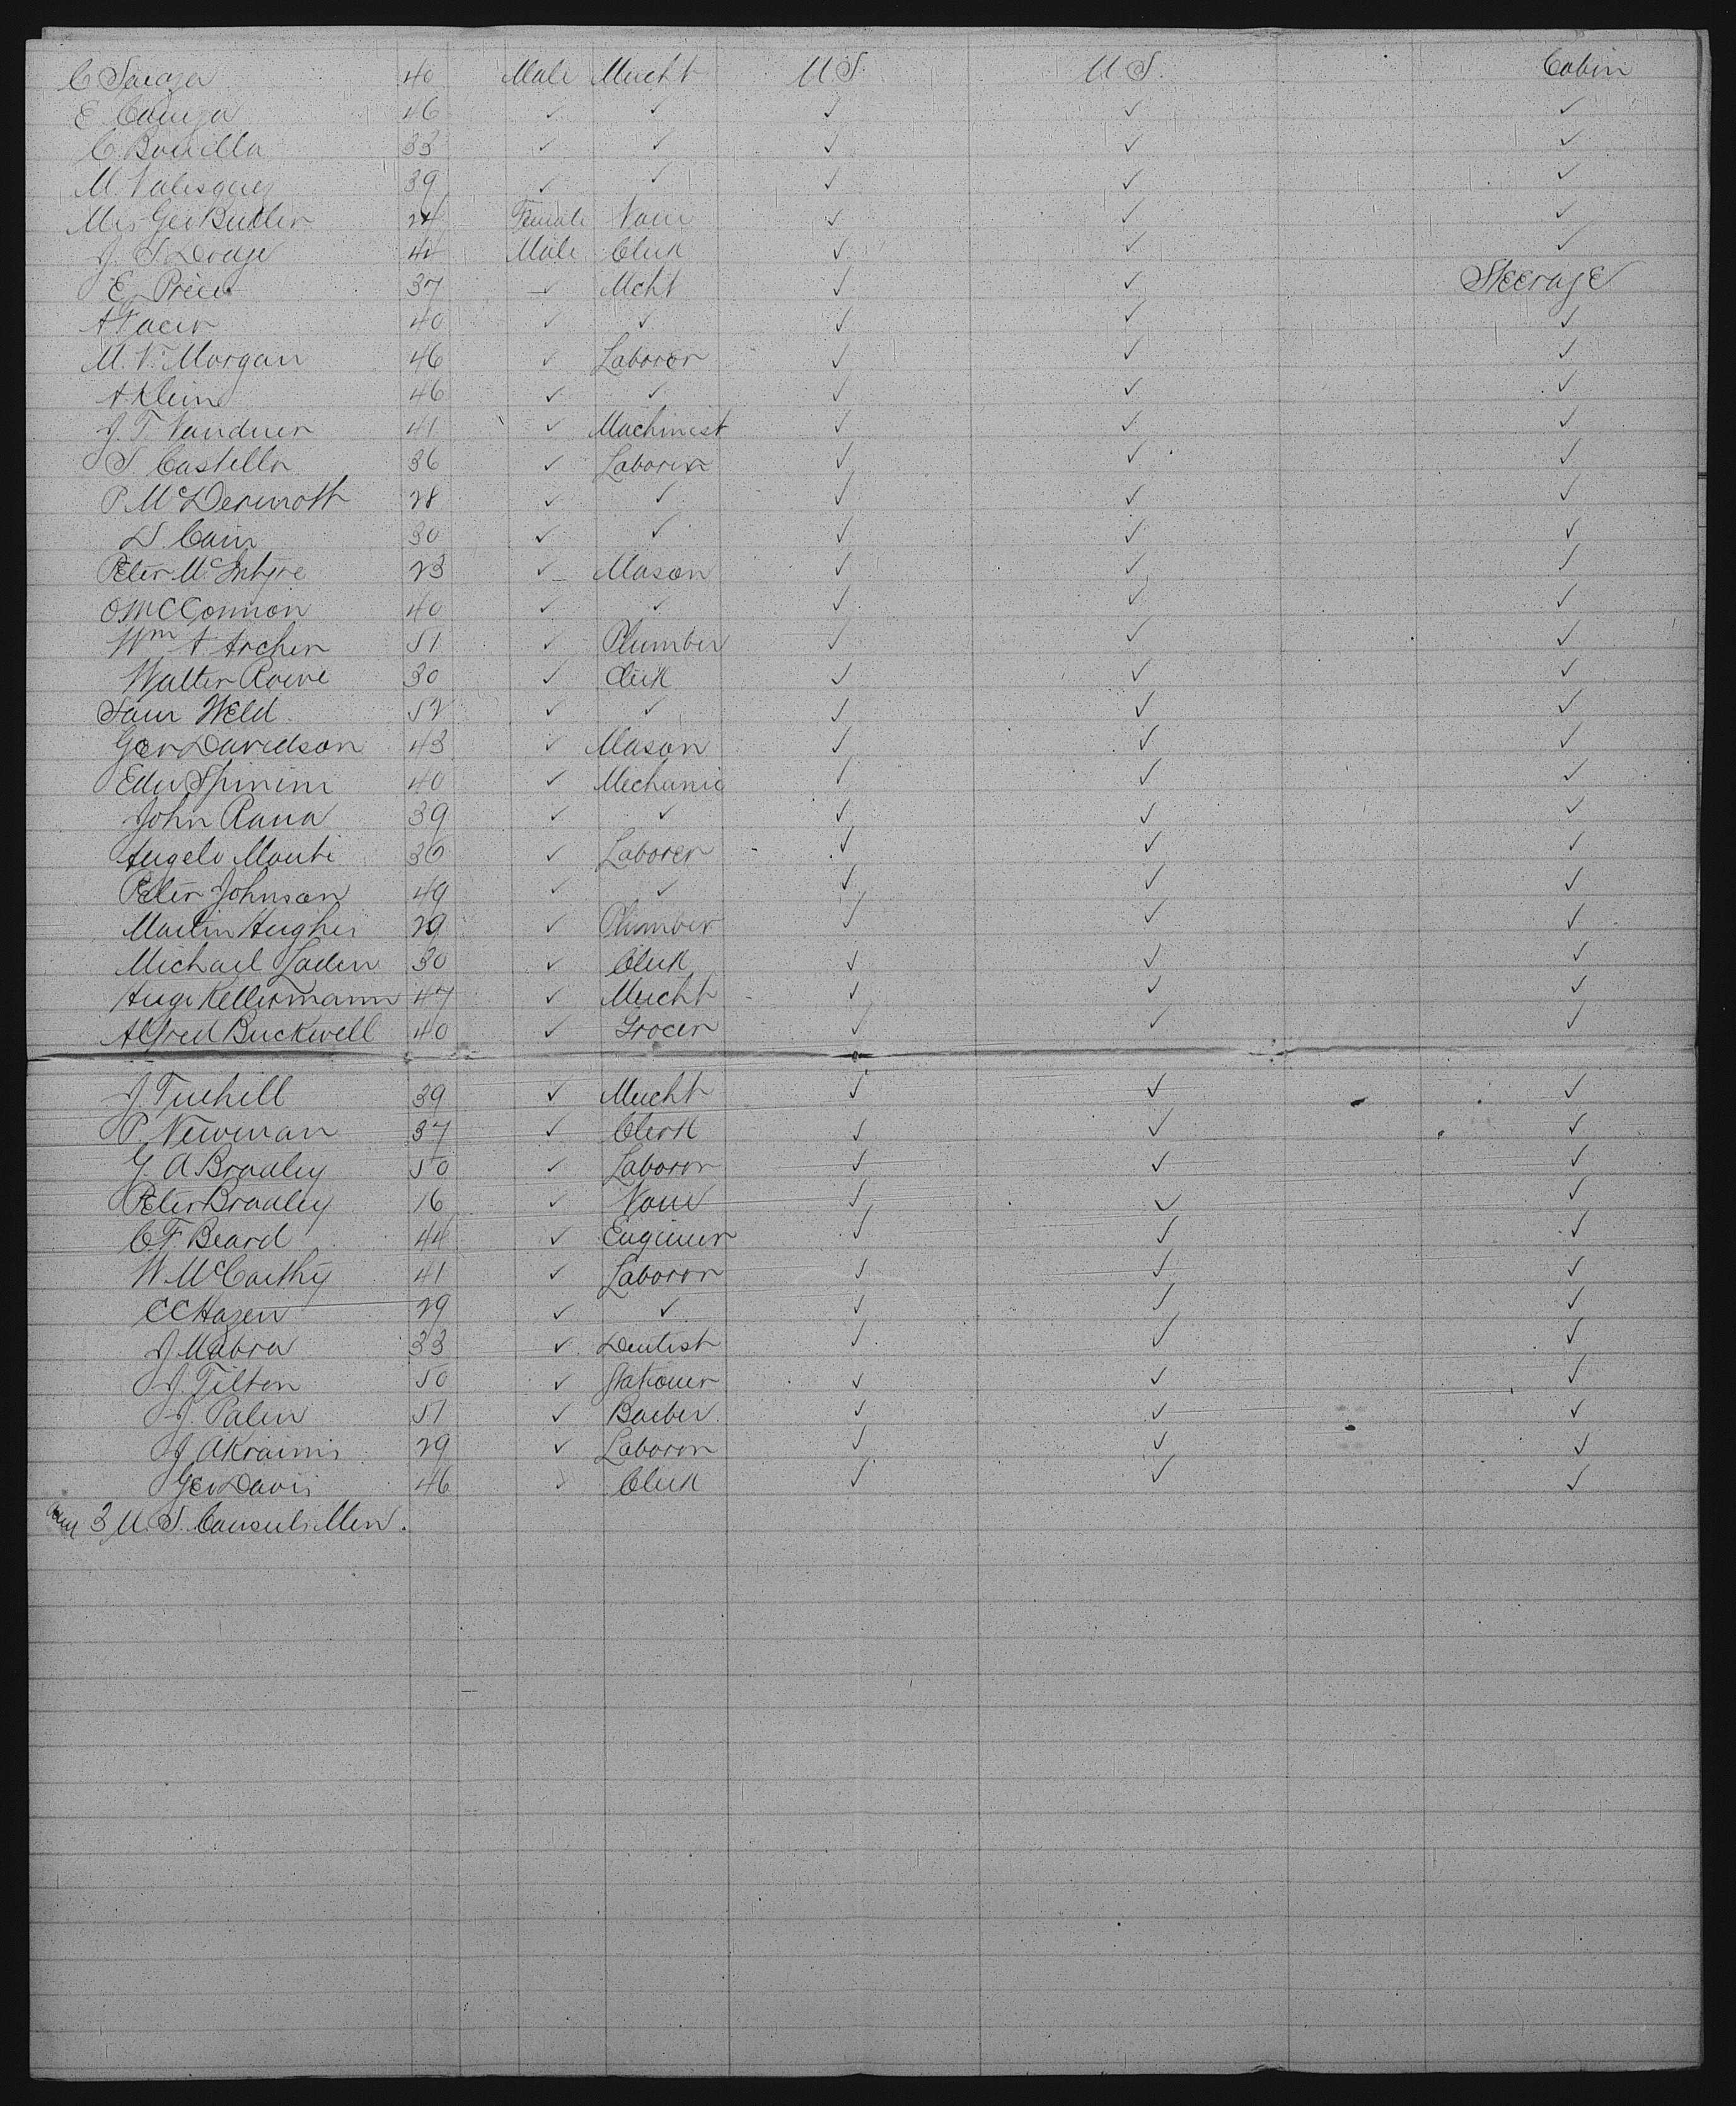 C 40 Male Mercht U S. U S. Cabin
E. 46 ✓ ✓ ✓ ✓ ✓
C. Bonilla 33 ✓ ✓ ✓ ✓ ✓
M. Valesquez 39 ✓ ✓ ✓ ✓ ✓
Mrs Geo Butler 24 Female None ✓ ✓ ✓
J. S. Drage 44 Male Clerk ✓ ✓ ✓
E. Price 37 ✓ Mcht ✓ ✓ Steerage
A 40 ✓ ✓ ✓ ✓ ✓
M. V. Morgan 46 ✓ Laborer ✓ ✓ ✓
A Klein 46 ✓ ✓ ✓ ✓ ✓
J. T. 41 ✓ Machinist ✓ ✓ ✓
S Castello 36 ✓ Laborer ✓ ✓ ✓
P. McDermott 28 ✓ ✓ ✓ ✓ ✓
D. Cain 30 ✓ ✓ ✓ ✓ ✓
Peter McIntyre 23 ✓ Mason ✓ ✓ ✓
O McConnon 40 ✓ ✓ ✓ ✓ ✓
Wm A Archer 51 ✓ Plumber ✓ ✓ ✓
Walter Rowe 30 ✓ Clerk ✓ ✓ ✓
Sam Weld 52 ✓ ✓ ✓ ✓ ✓
Geo Davidson 43 ✓ Mason ✓ ✓ ✓
Edw 40 ✓ Mechanic ✓ ✓ ✓
John Rana 39 ✓ ✓ ✓ ✓ ✓
Angelo Monti 36 ✓ Laborer ✓ ✓ ✓
Peter Johnson 49 ✓ ✓ ✓ ✓ ✓
Martin Hughes 29 ✓ Plumber ✓ ✓ ✓
Michael Laden 30 ✓ Clerk ✓ ✓ ✓
Aug. Kellermann 47 ✓ Mercht ✓ ✓ ✓
Alfred Buckwell 40 ✓ Grocer ✓ ✓ ✓
J Tuthill 39 ✓ Mercht ✓ ✓ ✓
P. Newman 37 ✓ Clerk ✓ ✓ ✓
G. A Bradley 50 ✓ Laborer ✓ ✓ ✓
Peter Bradley 16 ✓ None ✓ ✓ ✓
C F Beard 44 ✓ Engineer ✓ ✓ ✓
W McCarthy 41 ✓ Laborer ✓ ✓ ✓
C C Hazen 29 ✓ ✓ ✓ ✓ ✓
J Mabra 33 ✓ Dentist ✓ ✓ ✓
J. Tilton 50 ✓ Stationer ✓ ✓ ✓
J. Palen 51 ✓ Barber ✓ ✓ ✓
J. 29 ✓ Laborer ✓ ✓ ✓
Geo Davis 46 ✓ Clerk ✓ ✓ ✓
3 U. S. Consuls Men.